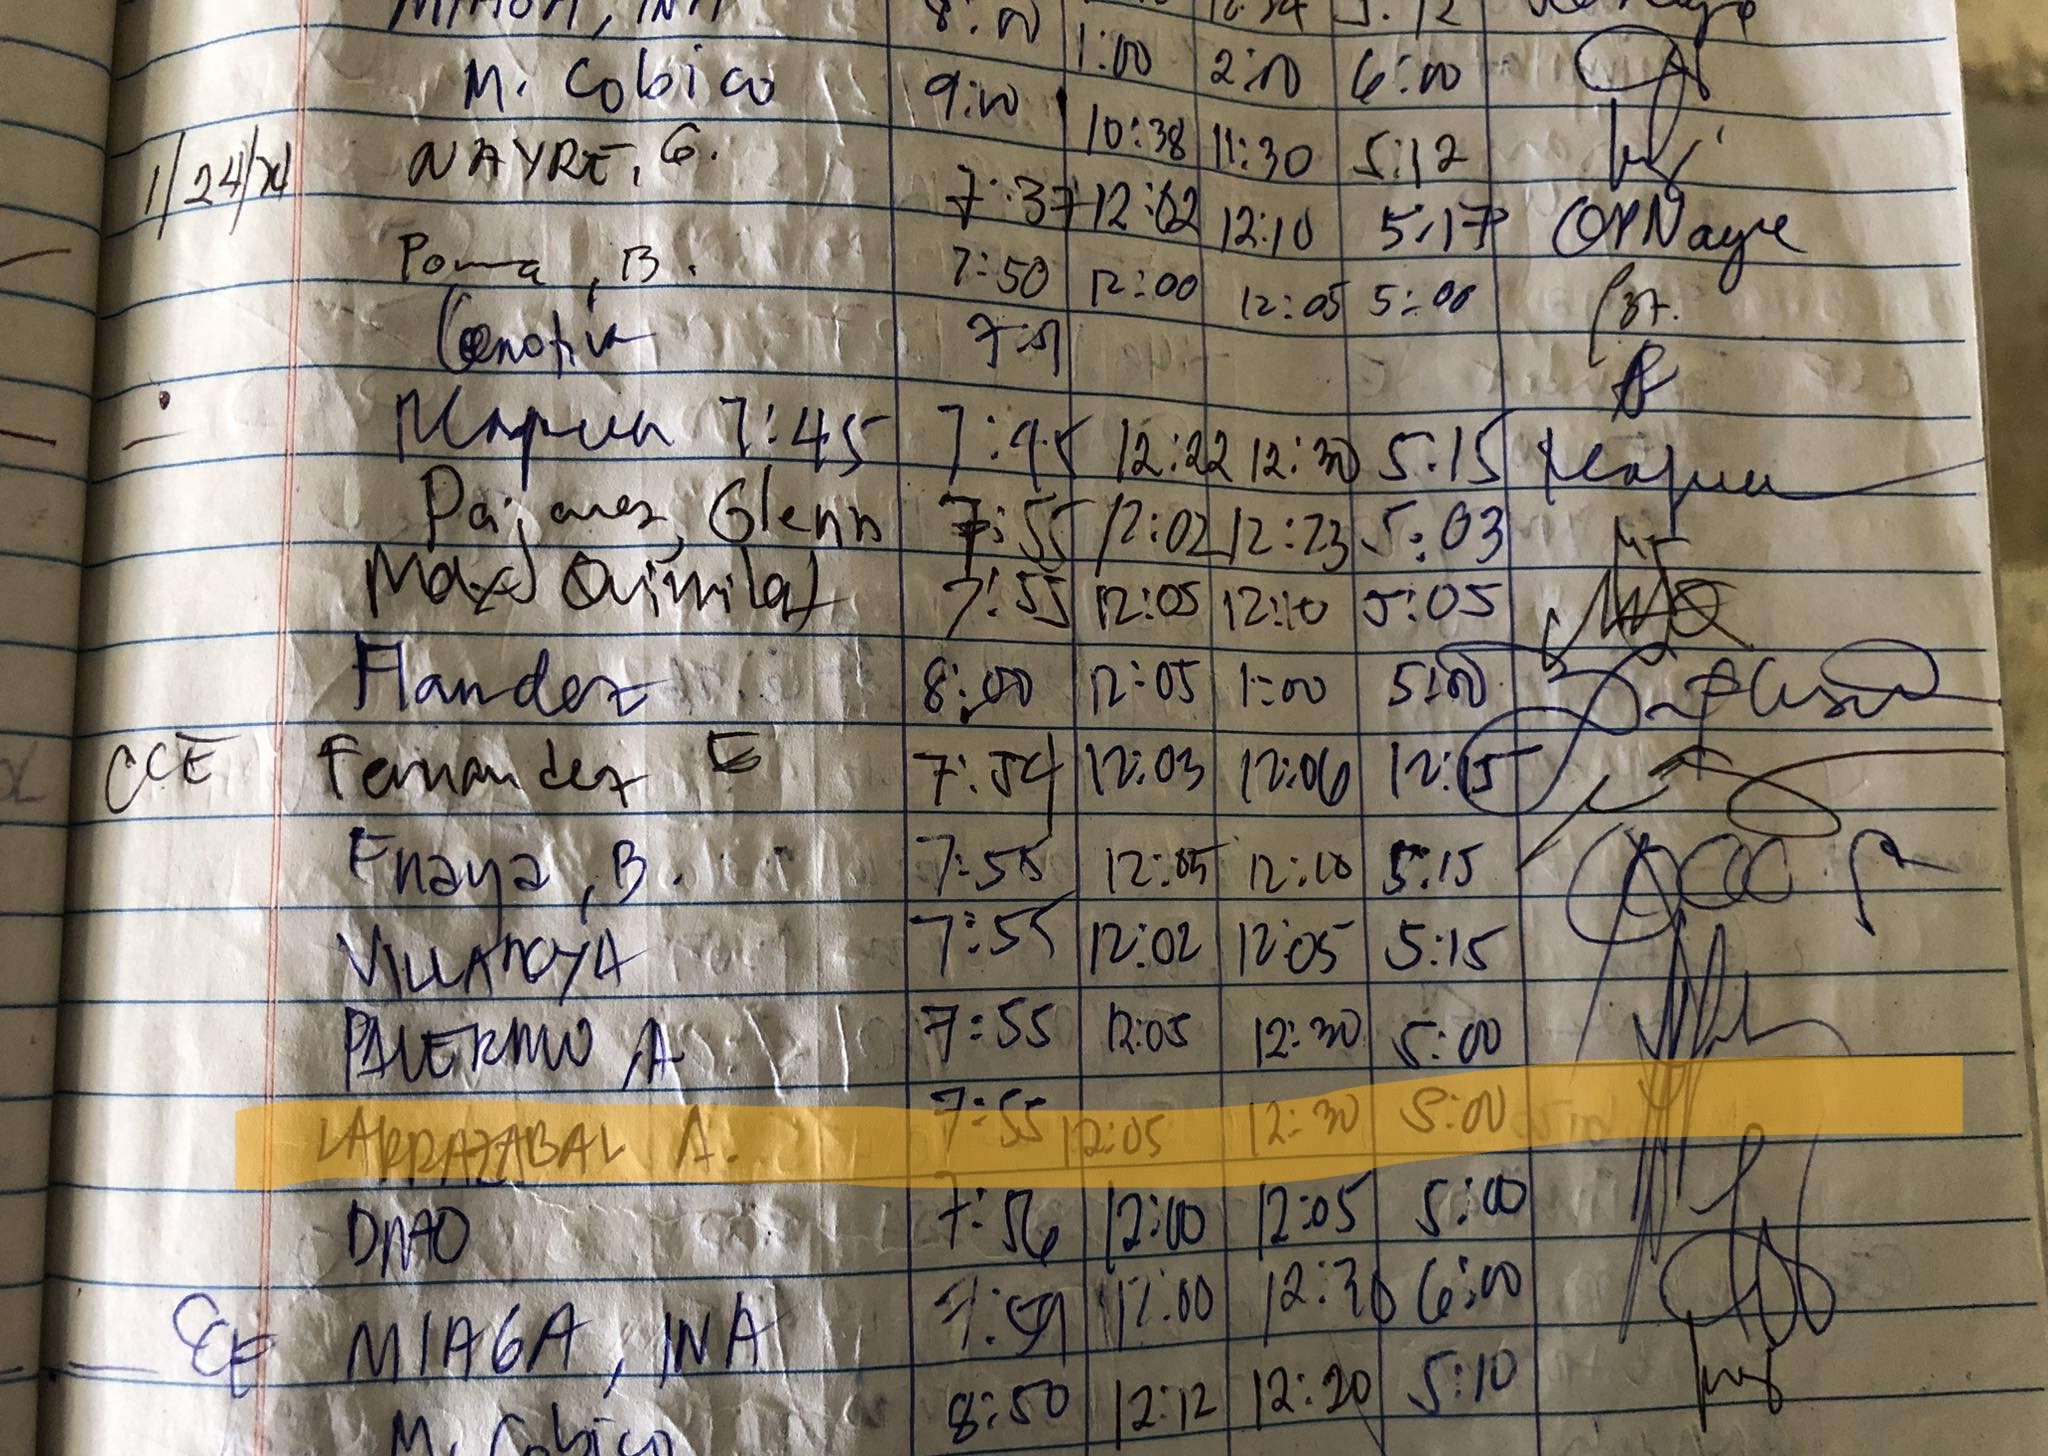 MIAGA, INA 8:00 5:12
M. Cobico 9:00 1:00 2:00 6:00
10:38 11:30 5:12
1/24/24 NAYRE, G. 7:37 12:02 12:10 5:17 Nayre
Poma, B. 7:50 12:00 12:05 5:00
7:45 7:45 12:22 12:30 5:15
Pajares, Glenn 7:55 12:02 12:23 5:03
Max Quimilat 7:55 12:05 12:10 5:05
Flandez 8:00 12:05 1:00 5:00
CCE Fernandez E 7:54 12:03 12:06 12:15
Enaya, B. 7:55 12:05 12:10 5:15
VILLANOYA 7:55 12:02 12:05 5:15
PALERMO, A 7:55 12:05 12:30 5:00
LARRAZABAL A. 7:55 12:05 12:30 5:00
DNAO 7:56 12:00 12:05 5:00
CCE MIAGA, INA 7:59 12:00 12:30 6:00
M. Cobico 8:50 12:12 12:20 5:10